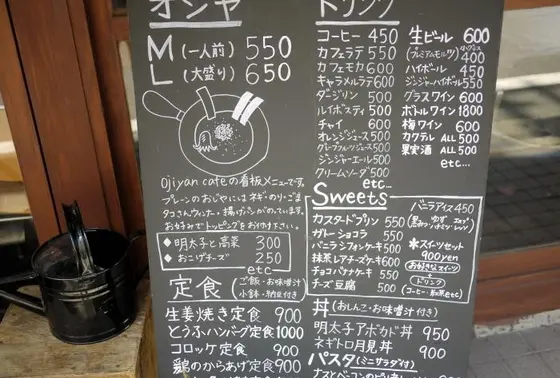 オジヤ
M(一人前) 550
L(大盛り) 650
Ojiyan cafeの看板メニューです。
プレーンのおじやにはネギ・のり・ごま
タコさんウィンナー・揚げパンがのています。
お好みでトッピングをお付け下さい。
◆明太子と高菜 300
◆おこげチーズ 250
etc
定食(ご飯・お味噌汁
小鉢・納豆付き)
生姜焼き定食 900
とうふハンバーグ定食 1000
コロッケ定食 900
鶏のからあげ定食 900
ドリンク
コーヒー 450
カフェラテ 550
カフェモカ 600
キャラメルラテ 600
ダージリン 500
ルイボスティ 500
チャイ 600
オレンジジュース 500
グレープフルーツジュース 500
ジンジャーエール 500
クリームソーダ 500
etc
生ビール 600
(プレミアムモルツ) 400
ハイボール 450
ジンジャーハイボール 550
グラスワイン 600
ボトルワイン 1800
梅ワイン 600
カクテル ALL 500
果実酒 ALL 500
etc...
Sweets
カスタードプリン 550
ガトーショコラ 550
バニラシフォンケーキ 500
抹茶レアチーズケーキ 600
チョコバナナケーキ 550
チーズ豆腐 500
バニラアイス 450
*スイーツセット
900yen
お好きなスイーツ
+
ドリンク
(コーヒー・紅茶etc)
丼(おしんこ・お味噌汁付)
明太子アボカド丼 950
ネギトロ月見丼 900
パスタ(ミニサラダ付)